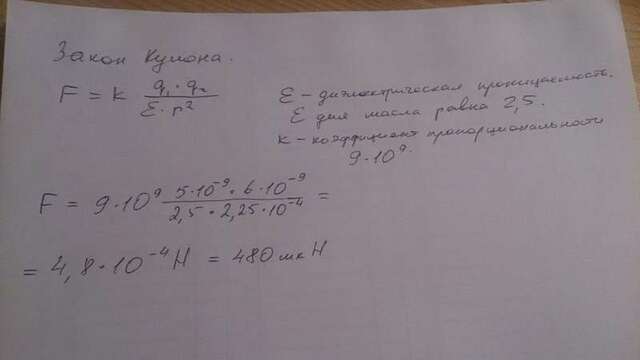 Закон Кулона.
F = k q₁·q₂ / ε·r²
ε – диэлектрическая проницаемость.
ε для масла равна 2,5.
k – коэффициент пропорциональности
9·10⁹.
F = 9·10⁹ 5·10⁻⁹·6·10⁻⁹ / 2,5·2,25·10⁻⁴ =
= 4,8·10⁻⁴Н = 480мкН